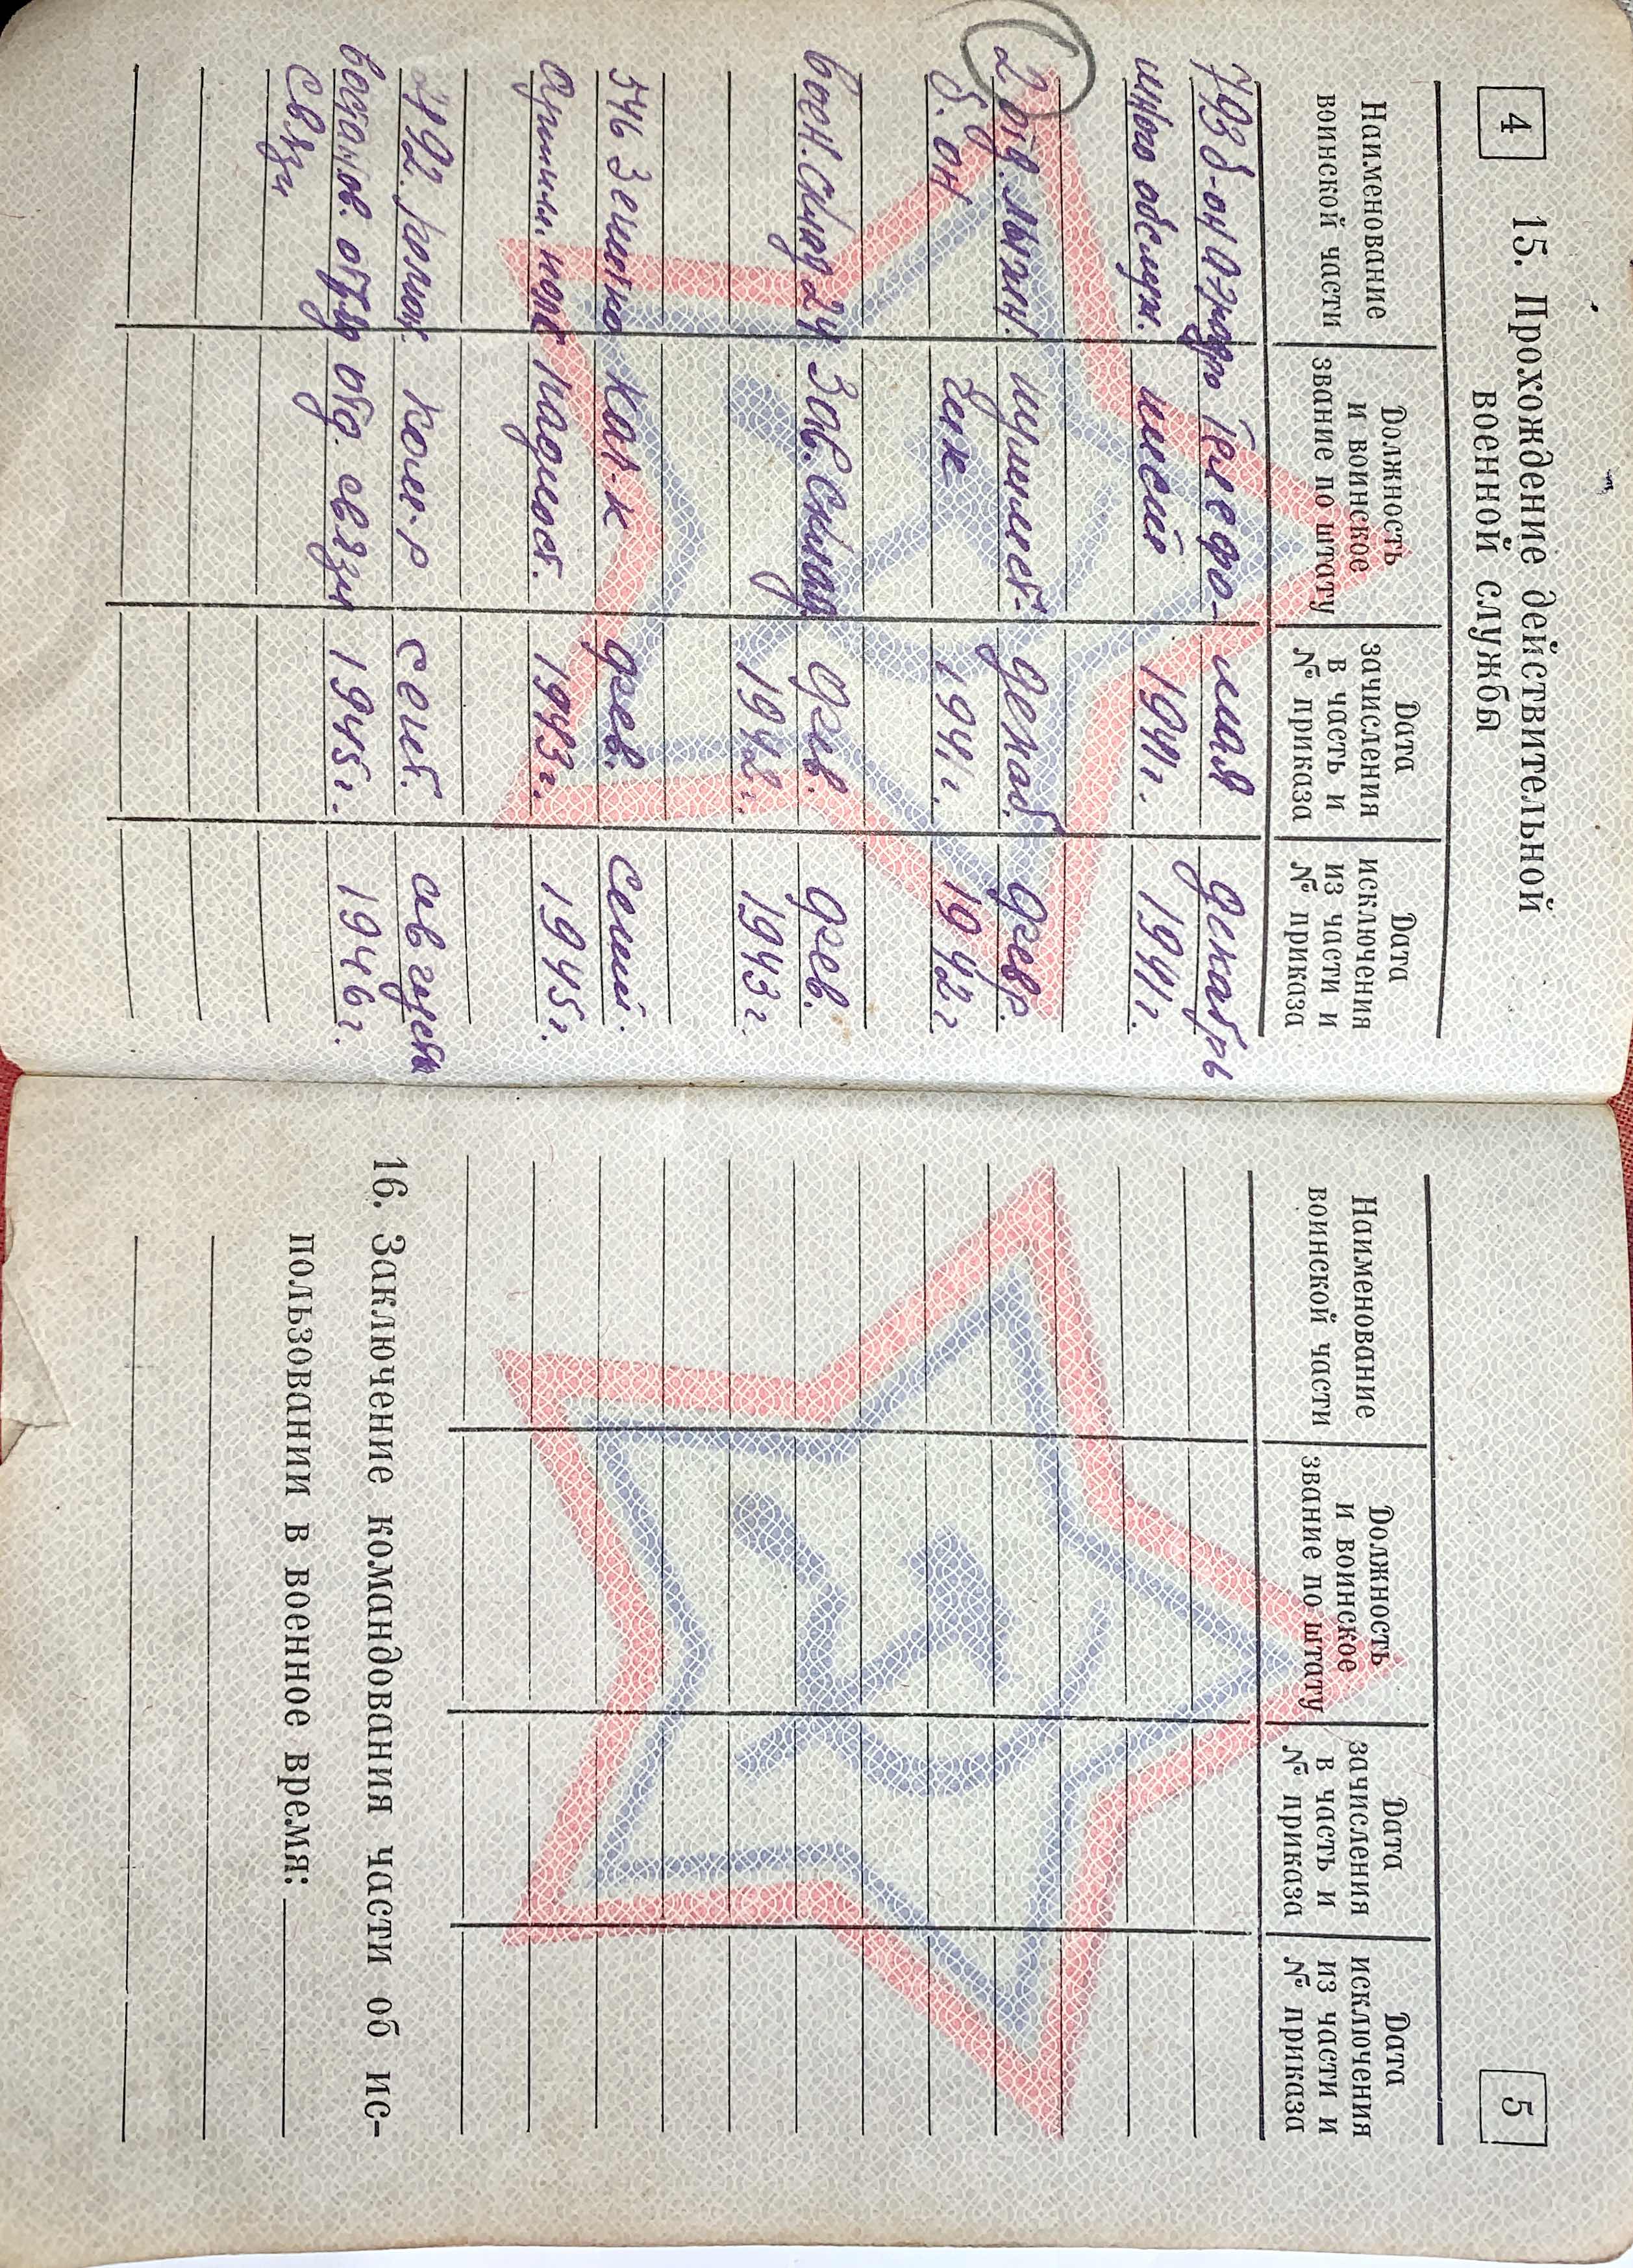 4
15. Прохождение действительной
военной службы
Наименование
воинской части
Должность
и воинское
звание по штату
Дата
зачисления
в часть и
№ приказа
Дата
исключения
из части и
№ приказа
793 б-он аэродро телефо- мая декабрь
много обслуж. нист 1941 г. 1941 г.
2 отд. лыжн. пулемет- декаб. февр.
б. он чик 1941 г. 1942 г.
воен. склад 24 Зав. склад. фев. фев.
1942 г. 1943 г.
546 Зенитно Ком-к фев. сент.
артилл. полк 1943 г. 1945 г.
ком-р сент. август
восстанов. отряд отд. связи 1945 г. 1946 г.
связи
5
Наименование
воинской части
Должность
и воинское
звание по штату
Дата
зачисления
в часть и
№ приказа
Дата
исключения
из части и
№ приказа
16. Заключение командования части об ис-
пользовании в военное время: